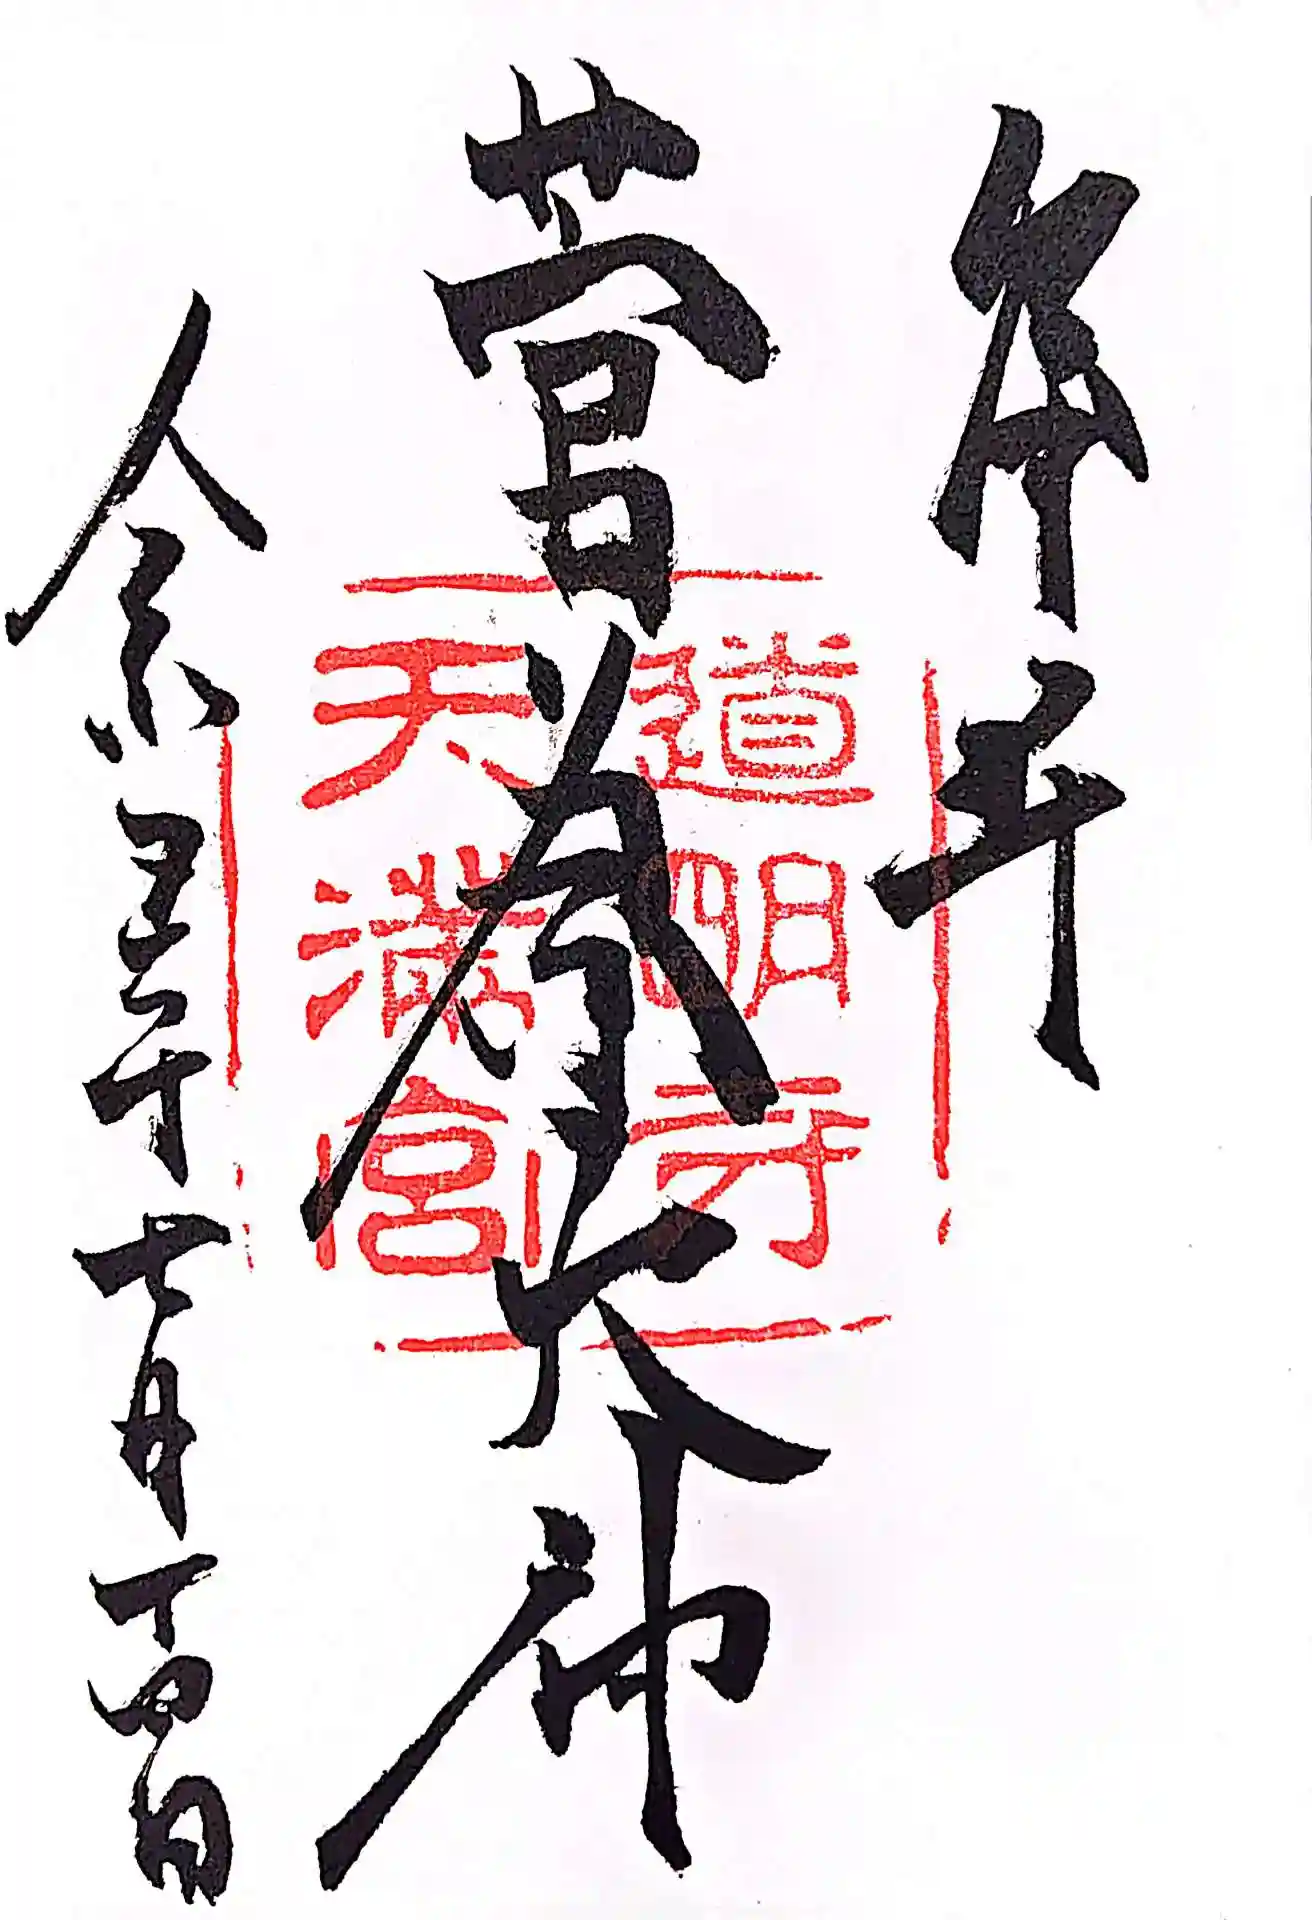 奉拝
菅原大神
道明寺
天満宮
令和五年十一月十四日